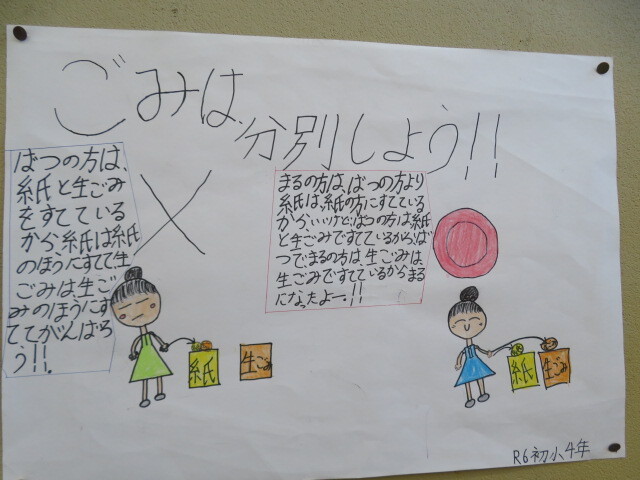 ごみは
分別しよう!!
ばつの方は、
紙と生ごみ
をすてている
から、紙は紙
のほうにすて、生
ごみは、生ご
みのほうにす
ててがんばろ
う!!。
まるの方は、ばつの方より
紙は、紙の方にすてている
からいいけど、ばつの方は、紙
と生ごみですてているから、ば
つでまるの方は、生ごみは
生ごみですてているからまる
になったよー。!!
紙
生ごみ
紙
生ごみ
R6初小4年